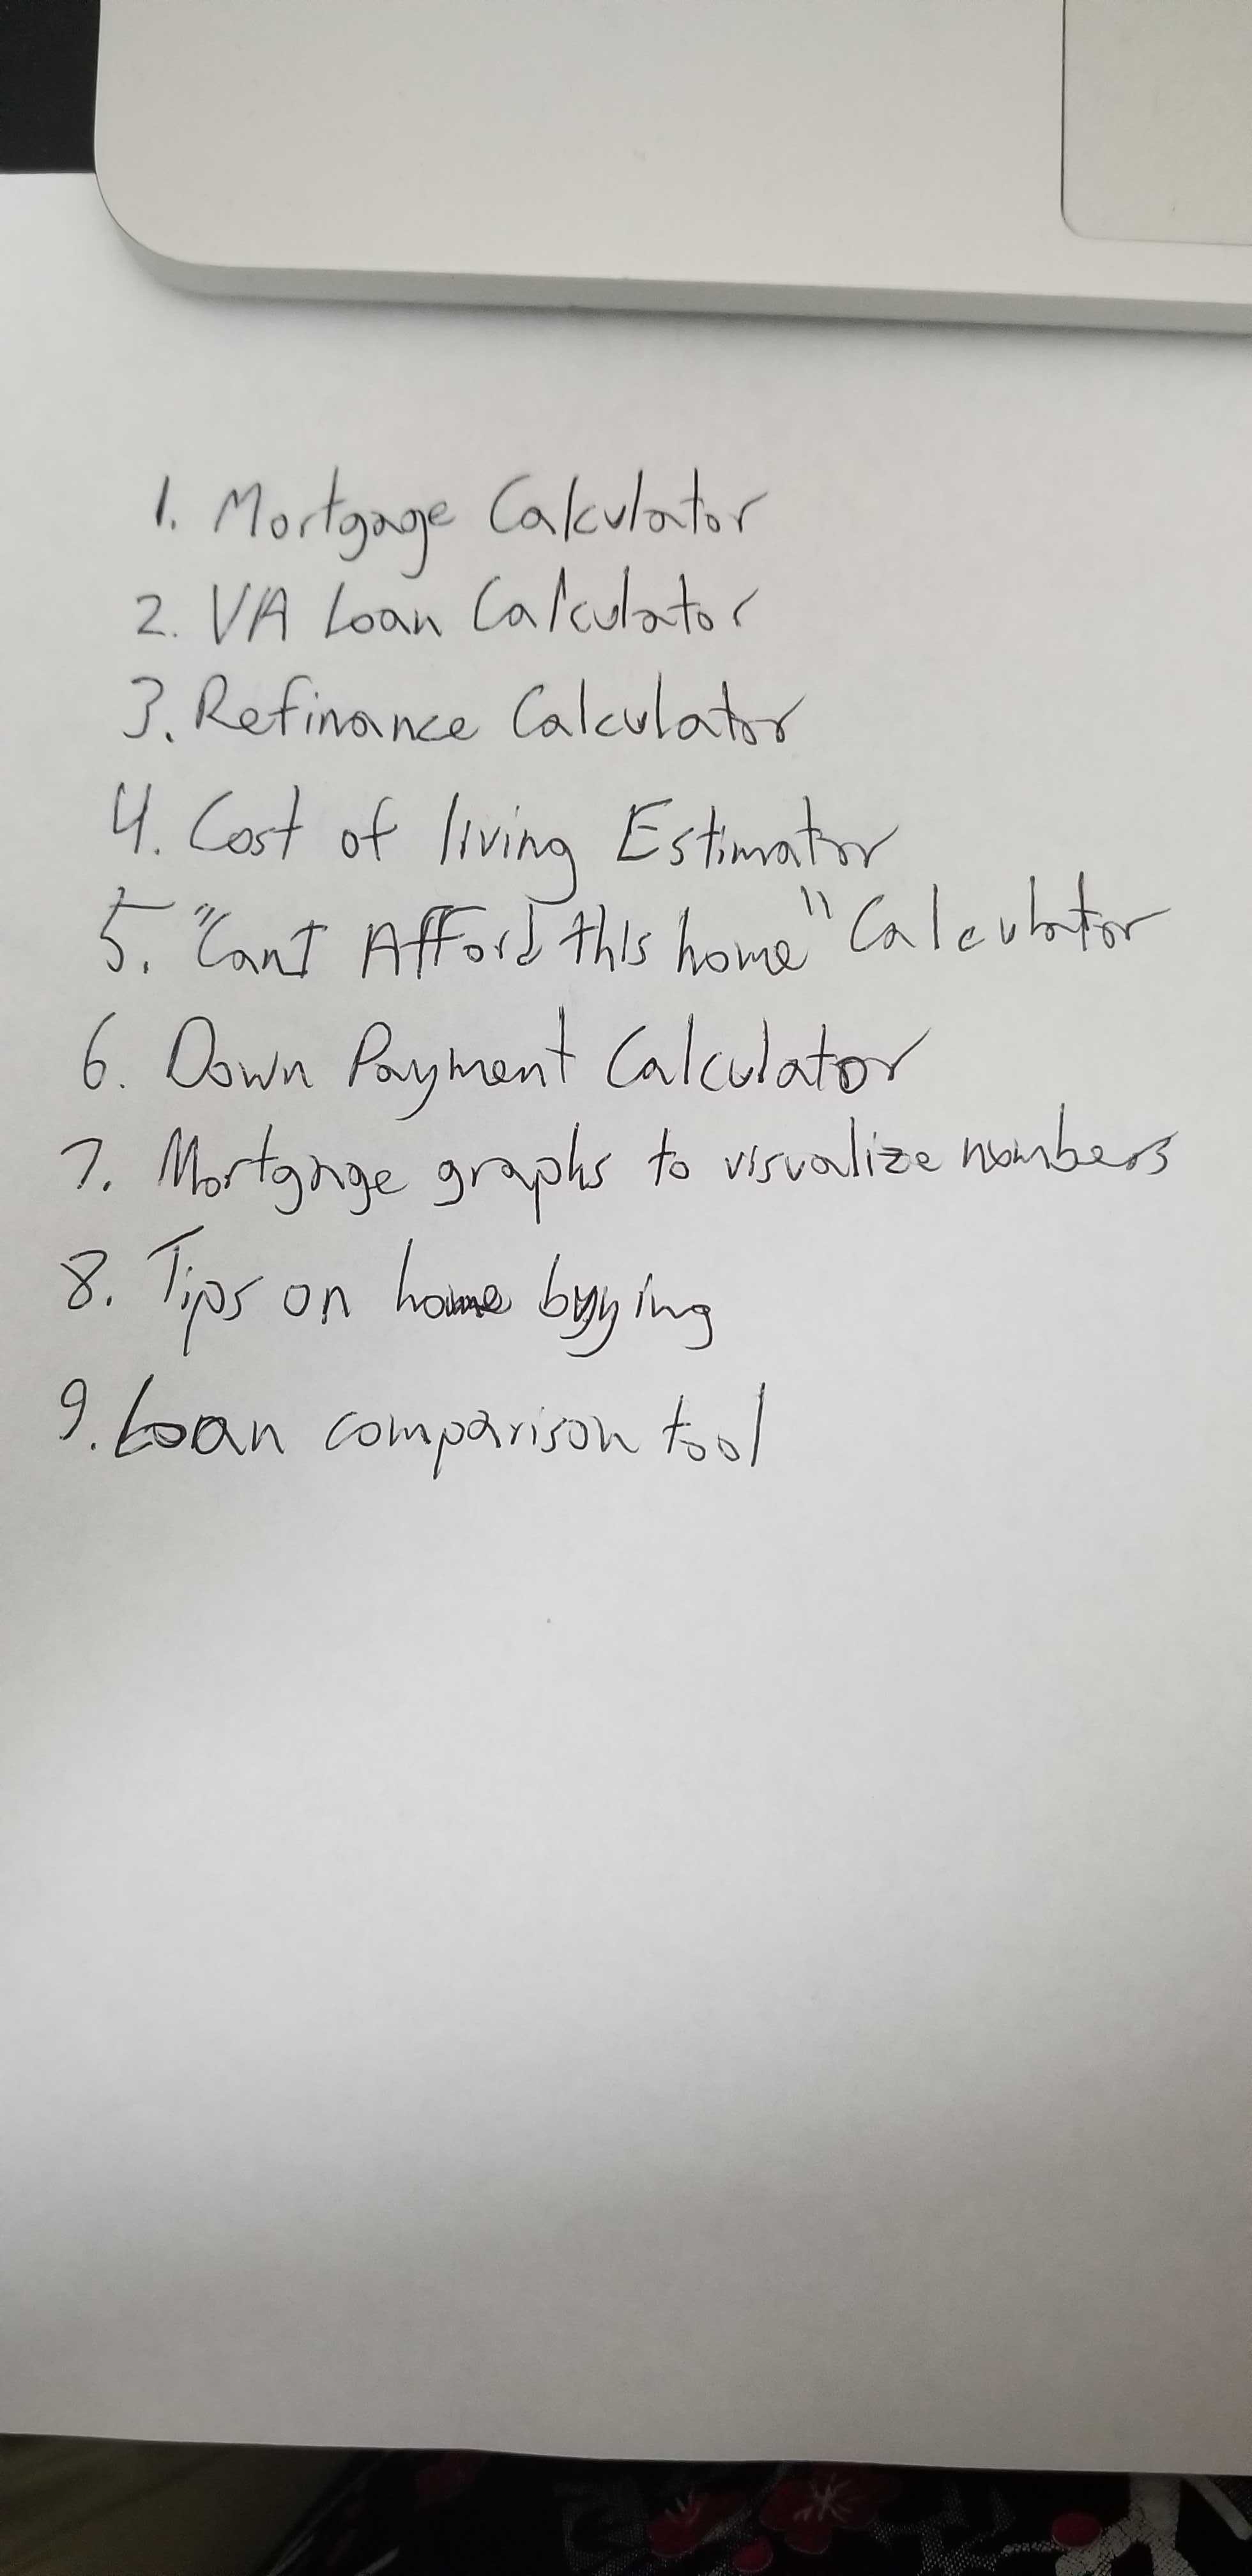 1. Mortgage Calculator
2. VA Loan Calculator
3. Refinance Calculator
4. Cost of living Estimator
5. "Can I Afford this home" Calculator
6. Down Payment Calculator
7. Mortgage graphs to visualize numbers
8. Tips on home buying
9. Loan comparison tool